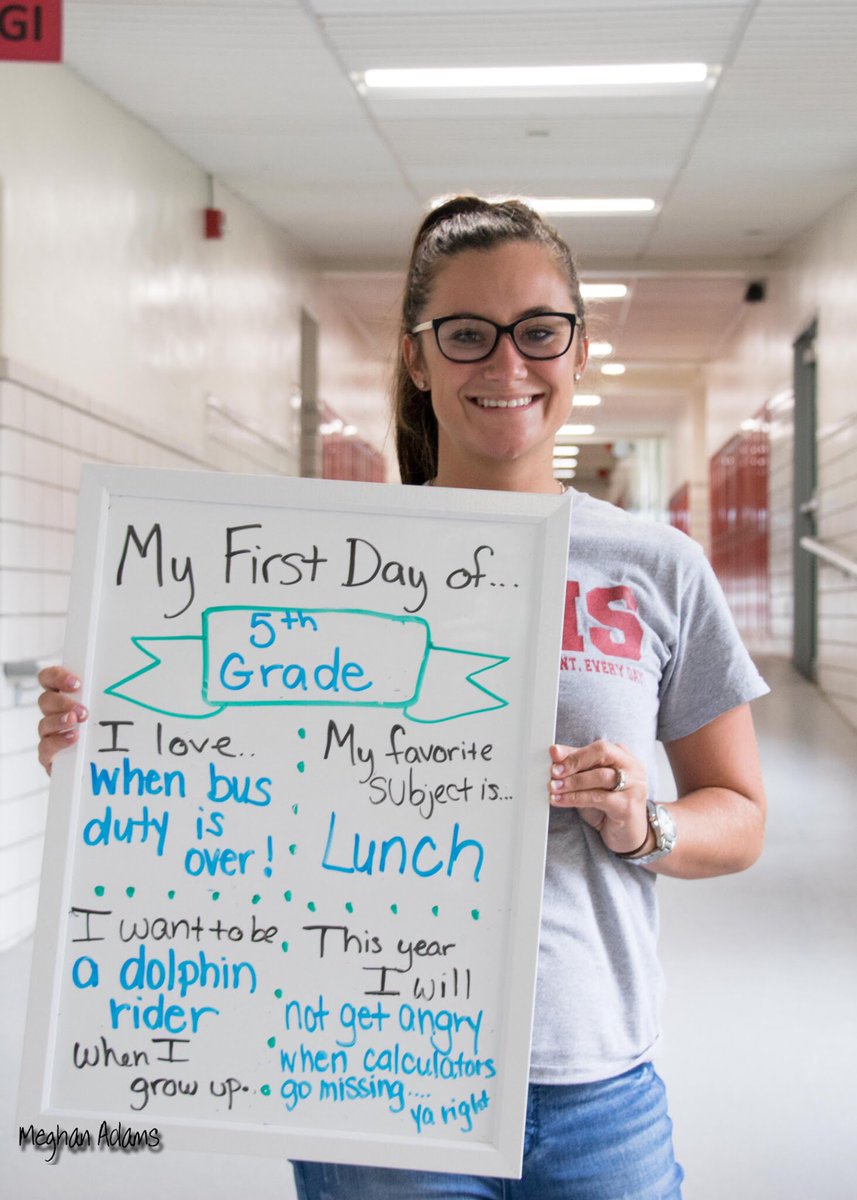 GI
My First Day of...
5th
Grade
I love..
when bus
duty is
over!
My favorite
subject is...
Lunch
I want to be
a dolphin
rider
when I
grow up...
This year
I will
not get angry
when calculators
go missing....
ya right
MS
NT. EVERY DAY
Meghan Adams